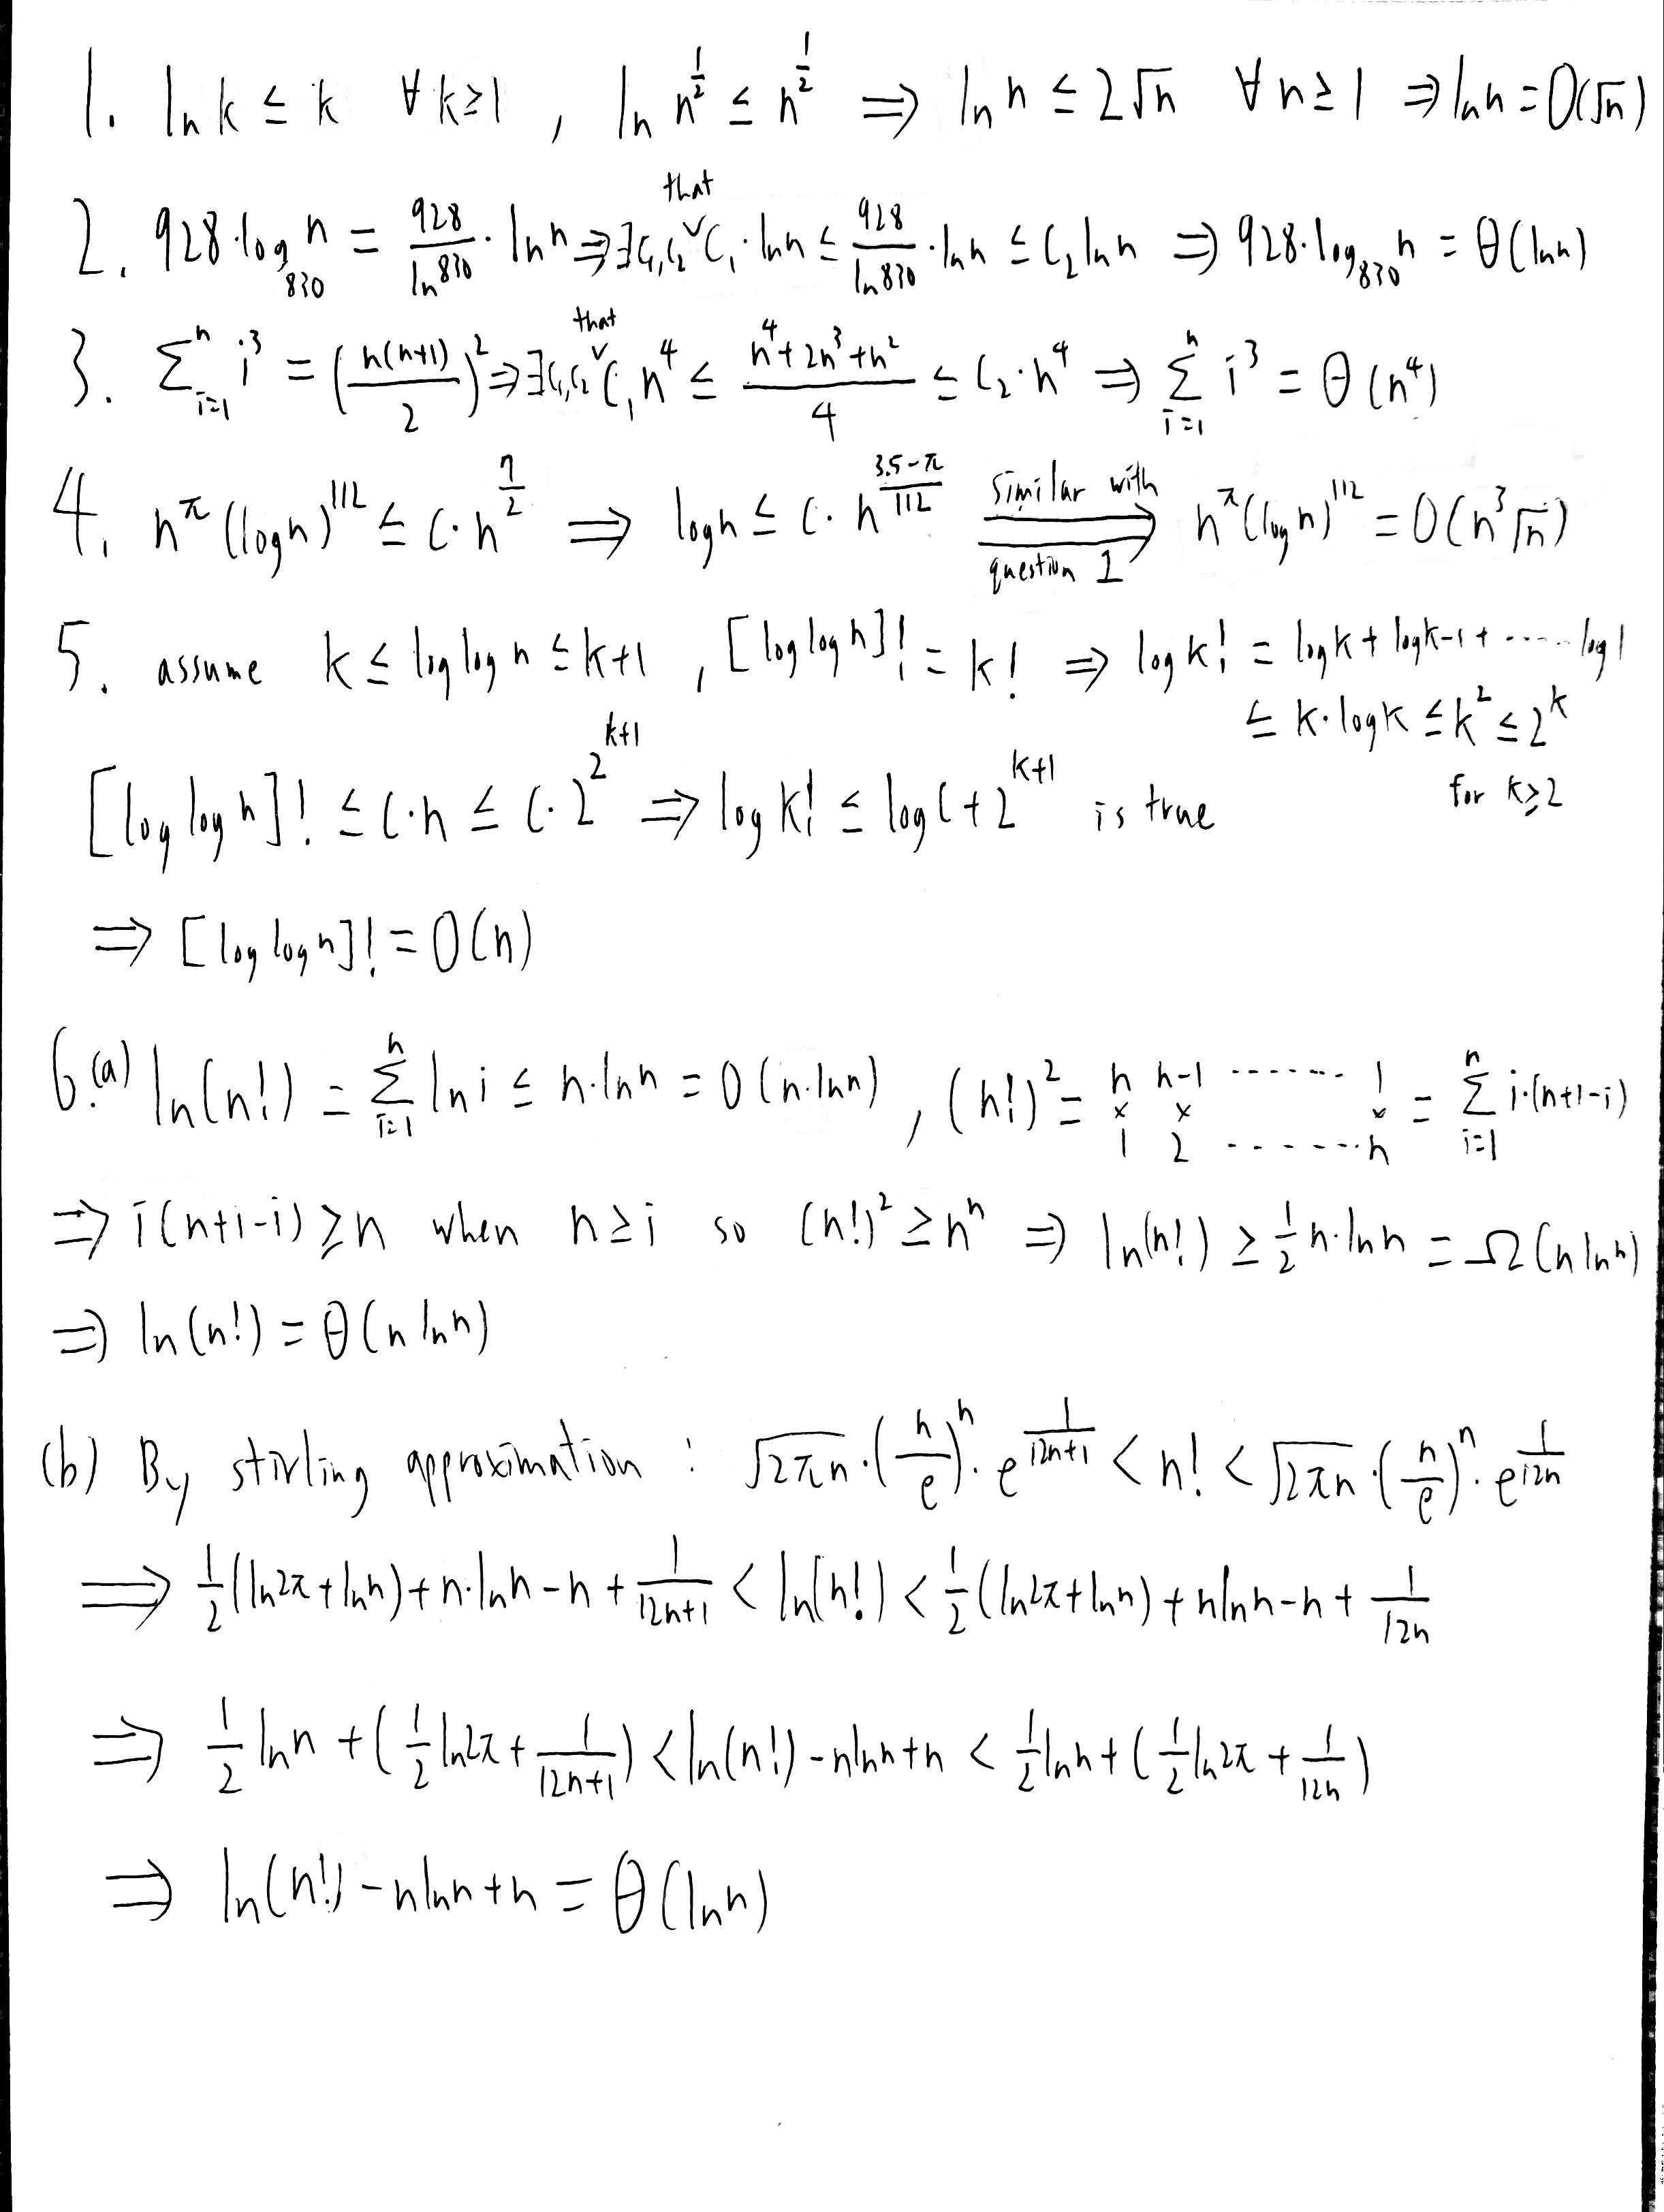 1. ln k ≤ k ∀k≥1 , ln n^{1/2} ≤ n^{1/2} ⟹ ln n ≤ 2√n ∀n≥1 ⇒ ln n = O(√n)
2. 928·log_{830} n = 928/ln830 · ln n ⇒ ∃C₁,C₂ that C₁·ln n ≤ 928/ln830 · ln n ≤ C₂ ln n ⇒ 928·log_{830} n = θ(ln n)
3. Σ_{i=1}^{n} i³ = (n(n+1)/2)² ⇒ ∃C₁,C₂ that C₁n⁴ ≤ (n⁴+2n³+n²)/4 ≤ C₂·n⁴ ⇒ Σ_{i=1}^{n} i³ = θ(n⁴)
4. n^π (log n)^{112} ≤ C·n^{7/2} ⟹ log n ≤ C·n^{(3.5-π)/112} similar with question 1 ⟹ n^π(log n)^{112} = O(n³√n)
5. assume k ≤ log log n ≤ k+1 , [log log n]! = k! ⇒ log k! = log k + log k-1 + ······ log 1
≤ k·log k ≤ k² ≤ 2^k
for k≥2
[log log n]! ≤ C·n ≤ C·2^{2^{k+1}} ⟹ log k! ≤ log C + 2^{k+1} is true
⟹ [log log n]! = O(n)
6.(a) ln(n!) = Σ_{i=1}^{n} ln i ≤ n·ln n = O(n·ln n) , (n!)² = n×1 n-1×2 ······ 1×n = Σ_{i=1}^{n} i·(n+1-i)
⇒ i(n+1-i) ≥ n when n≥i so (n!)² ≥ nⁿ ⇒ ln(n!) ≥ 1/2 n·ln n = Ω(n ln n)
⇒ ln(n!) = θ(n ln n)
(b) By stirling approximation : √2πn·(n/e)ⁿ·e^{1/(12n+1)} < n! < √2πn·(n/e)ⁿ·e^{1/12n}
⟹ 1/2(ln2π+ln n)+n·ln n-n+1/(12n+1) < ln(n!) < 1/2(ln2π+ln n)+n ln n-n+1/12n
⟹ 1/2 ln n+(1/2 ln2π+1/(12n+1)) < ln(n!)-n ln n+n < 1/2 ln n+(1/2 ln2π+1/12n)
⟹ ln(n!)-n ln n+n = θ(ln n)